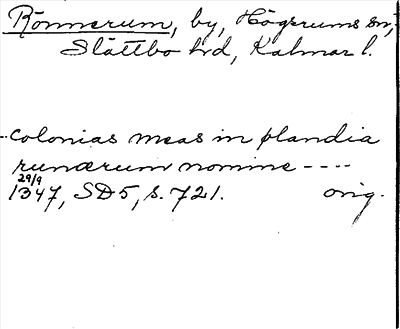 Rönnerum, by, Högsrums sn,
Slättbo hd, Kalmar l.
--colonias meas in ølandia
runærum nomine ----
29/9
1347, SD5, s. 721. orig.